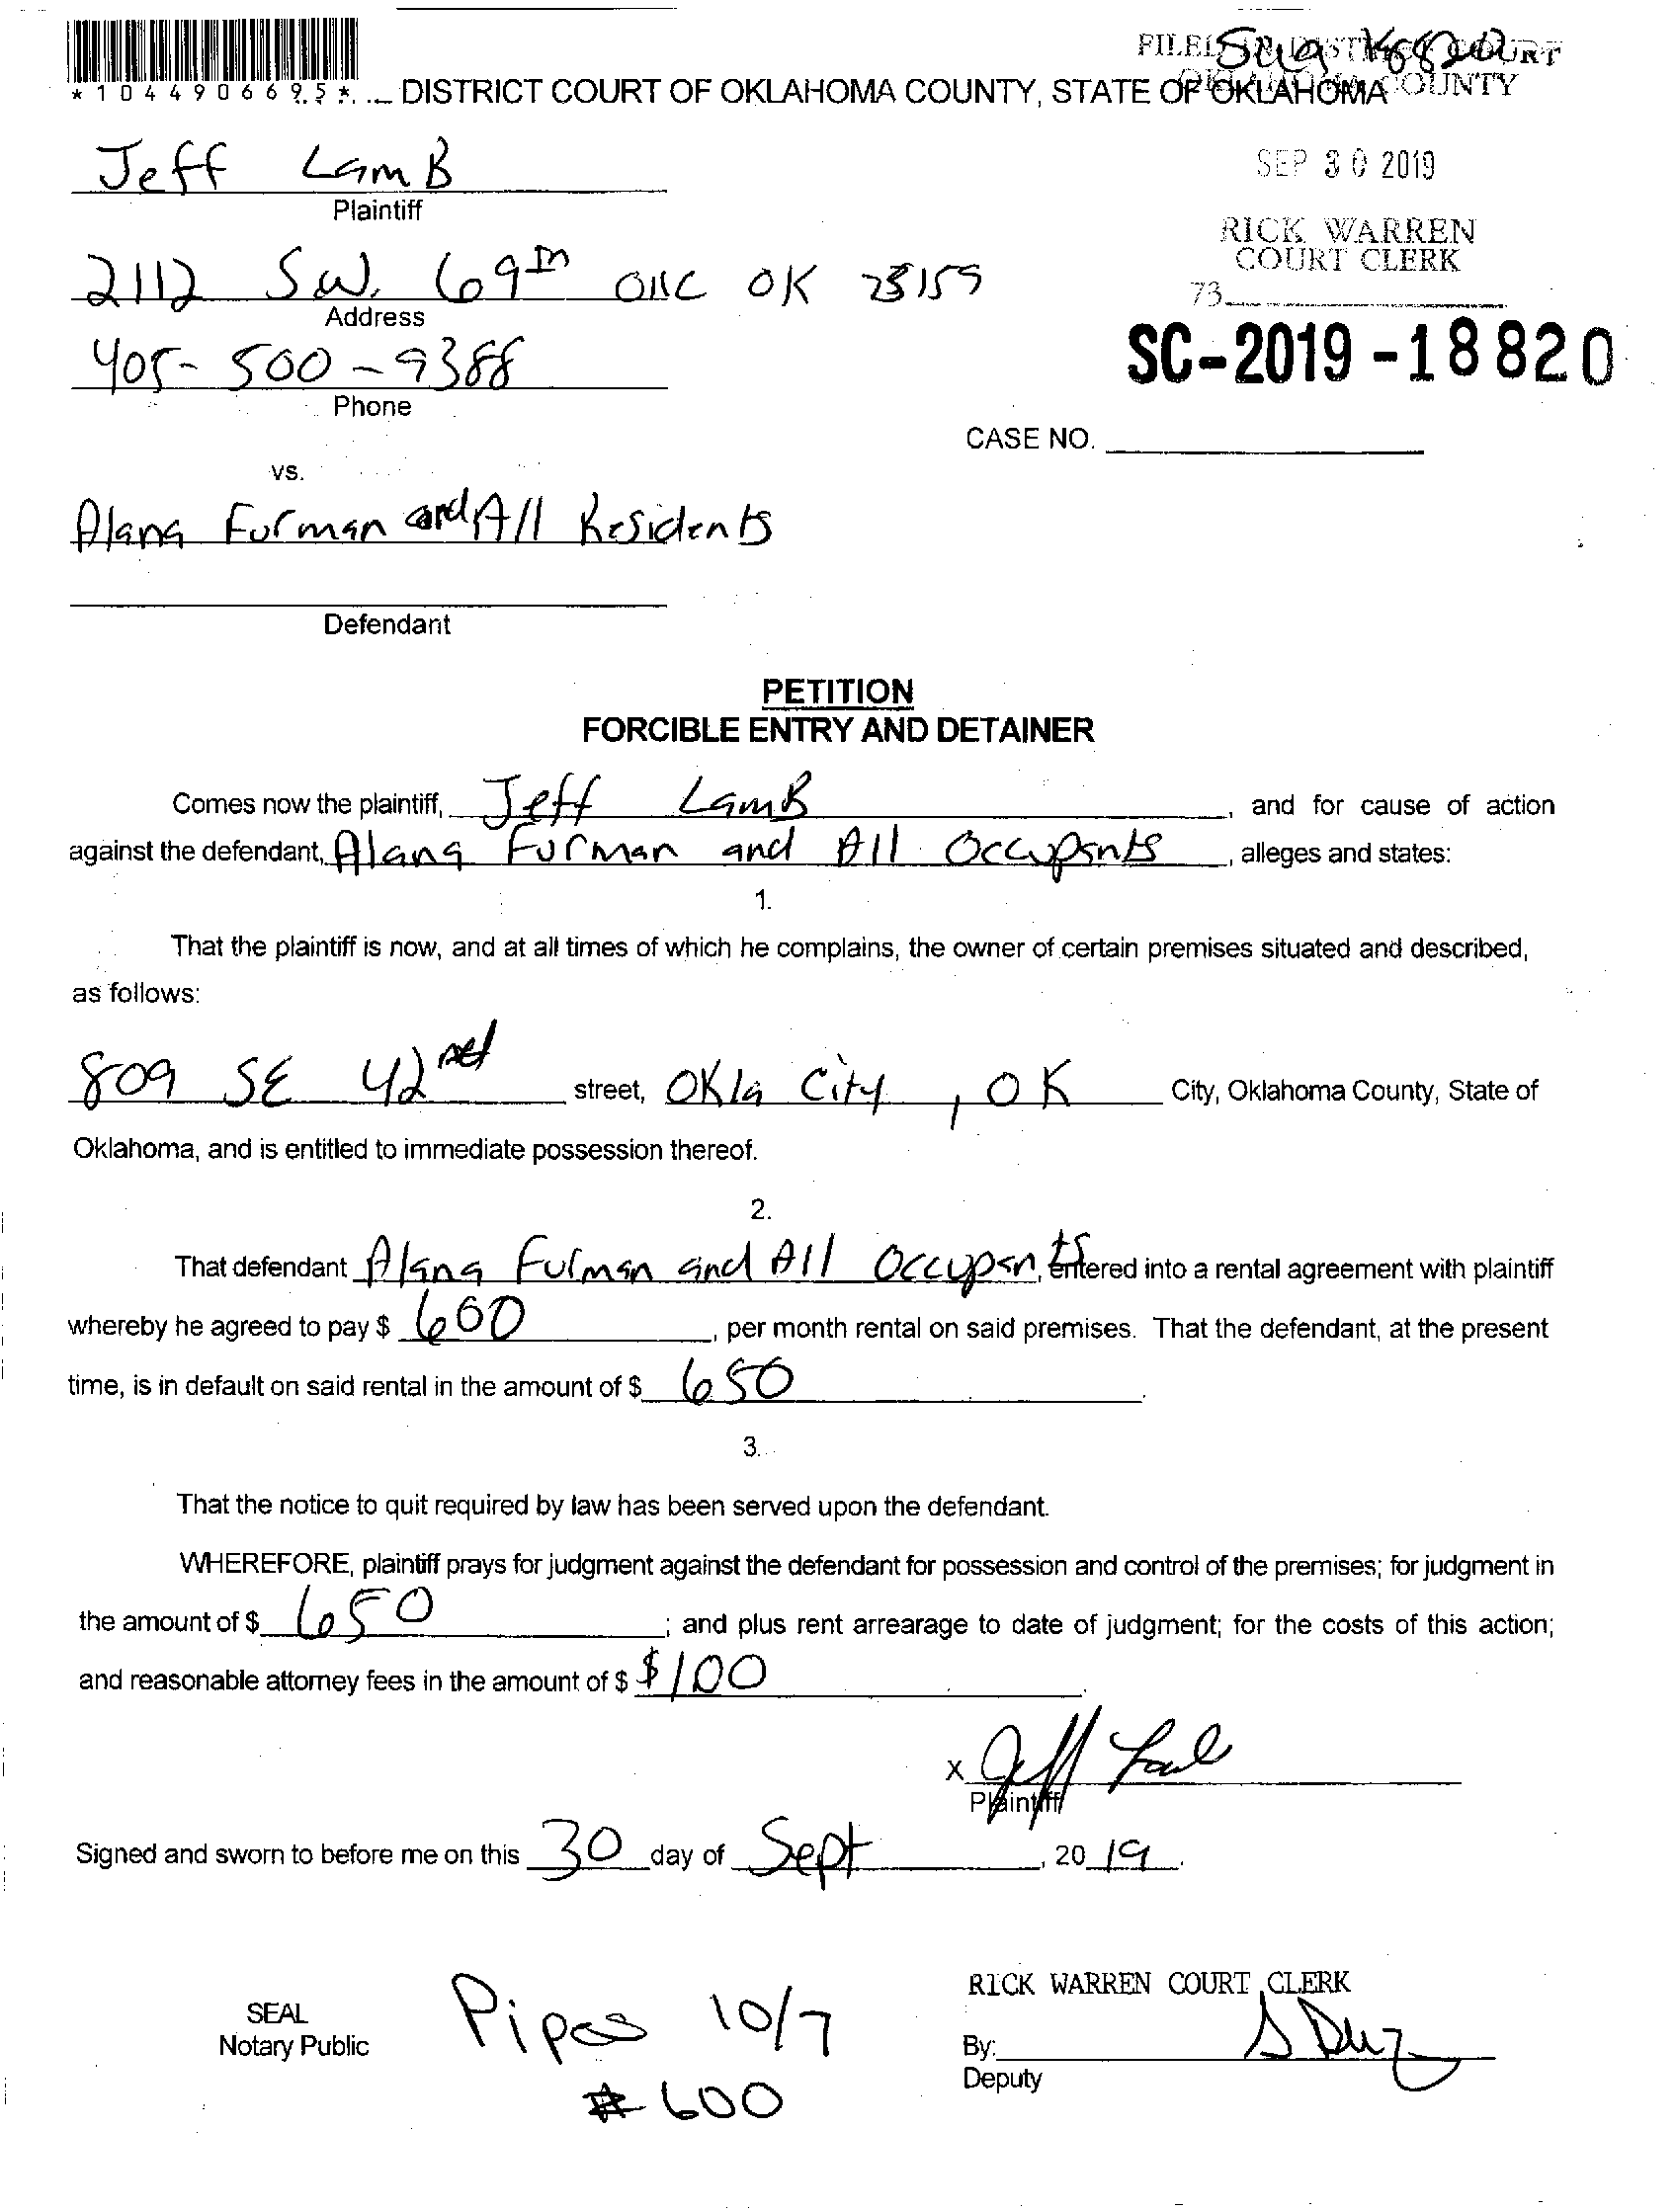 FILED IN DISTRICT COURT
OKLAHOMA COUNTY
*1044906695*
DISTRICT COURT OF OKLAHOMA COUNTY, STATE OF OKLAHOMA
Jeff LamB
Plaintiff
SEP 30 2019
RICK WARREN
COURT CLERK
73
2112 SW. 69th OKC OK 73159
Address
405-500-9388
Phone
SC-2019-18820
CASE NO.
vs.
Alana Furman and All Residents
Defendant
PETITION
FORCIBLE ENTRY AND DETAINER
Comes now the plaintiff, Jeff LamB, and for cause of action
against the defendant, Alana Furman and All Occupants, alleges and states:
1.
That the plaintiff is now, and at all times of which he complains, the owner of certain premises situated and described,
as follows:
809 SE 42nd street, Okla City, OK City, Oklahoma County, State of
Oklahoma, and is entitled to immediate possession thereof.
2.
That defendant Alana Furman and All Occupants, entered into a rental agreement with plaintiff
whereby he agreed to pay $ 600, per month rental on said premises. That the defendant, at the present
time, is in default on said rental in the amount of $ 650.
3.
That the notice to quit required by law has been served upon the defendant.
WHEREFORE, plaintiff prays for judgment against the defendant for possession and control of the premises; for judgment in
the amount of $ 650; and plus rent arrearage to date of judgment; for the costs of this action;
and reasonable attorney fees in the amount of $ $100.
x Jeff Lamb
Plaintiff
Signed and sworn to before me on this 30 day of Sept, 2019.
SEAL
Notary Public
Pipes 10/7
#600
RICK WARREN COURT CLERK
By:
Deputy